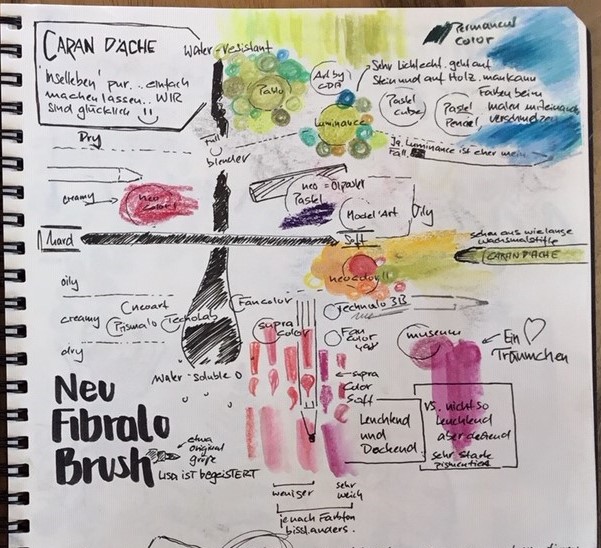 CARAN D'ACHE
'Inselleben' pur... einfach
machen lassen.. WIR
sind glücklich
Water-resistant
Permanent
color
Pablo
Art by
CDA
Sehr Lichtecht. geht auf
Stein und auf Holz. man kann
Farben beim
malen miteinander
verschmelzen
Luminance
Pastel
cube
Pastel
Pencel
Ja. Luminance ist eher mein
Fall.
Dry
Full
blender
creamy
neo
Color I
neo = Ölpastel
Pastel
Model'Art
Oily
hard
Soft
sehen aus wie lange
Wachsmalstifte
CARAN D'ACHE
neocolor II
oily
creamy
dry
Prismalo
Technalo
Fancolor
Technalo 3B
supra
color
Fan
color
museum
Ein
Träumchen
Water-Soluble
supra
Color
Soft
Leuchtend
und
Deckend
vs. nicht so
leuchtend
aber deckend
sehr stark
pigmentiert
Neu
Fibralo
Brush
etwa
original
größe
Lisa IST begeiSTERT
weniger
sehr
weich
je nach Farbton
bissl anders.